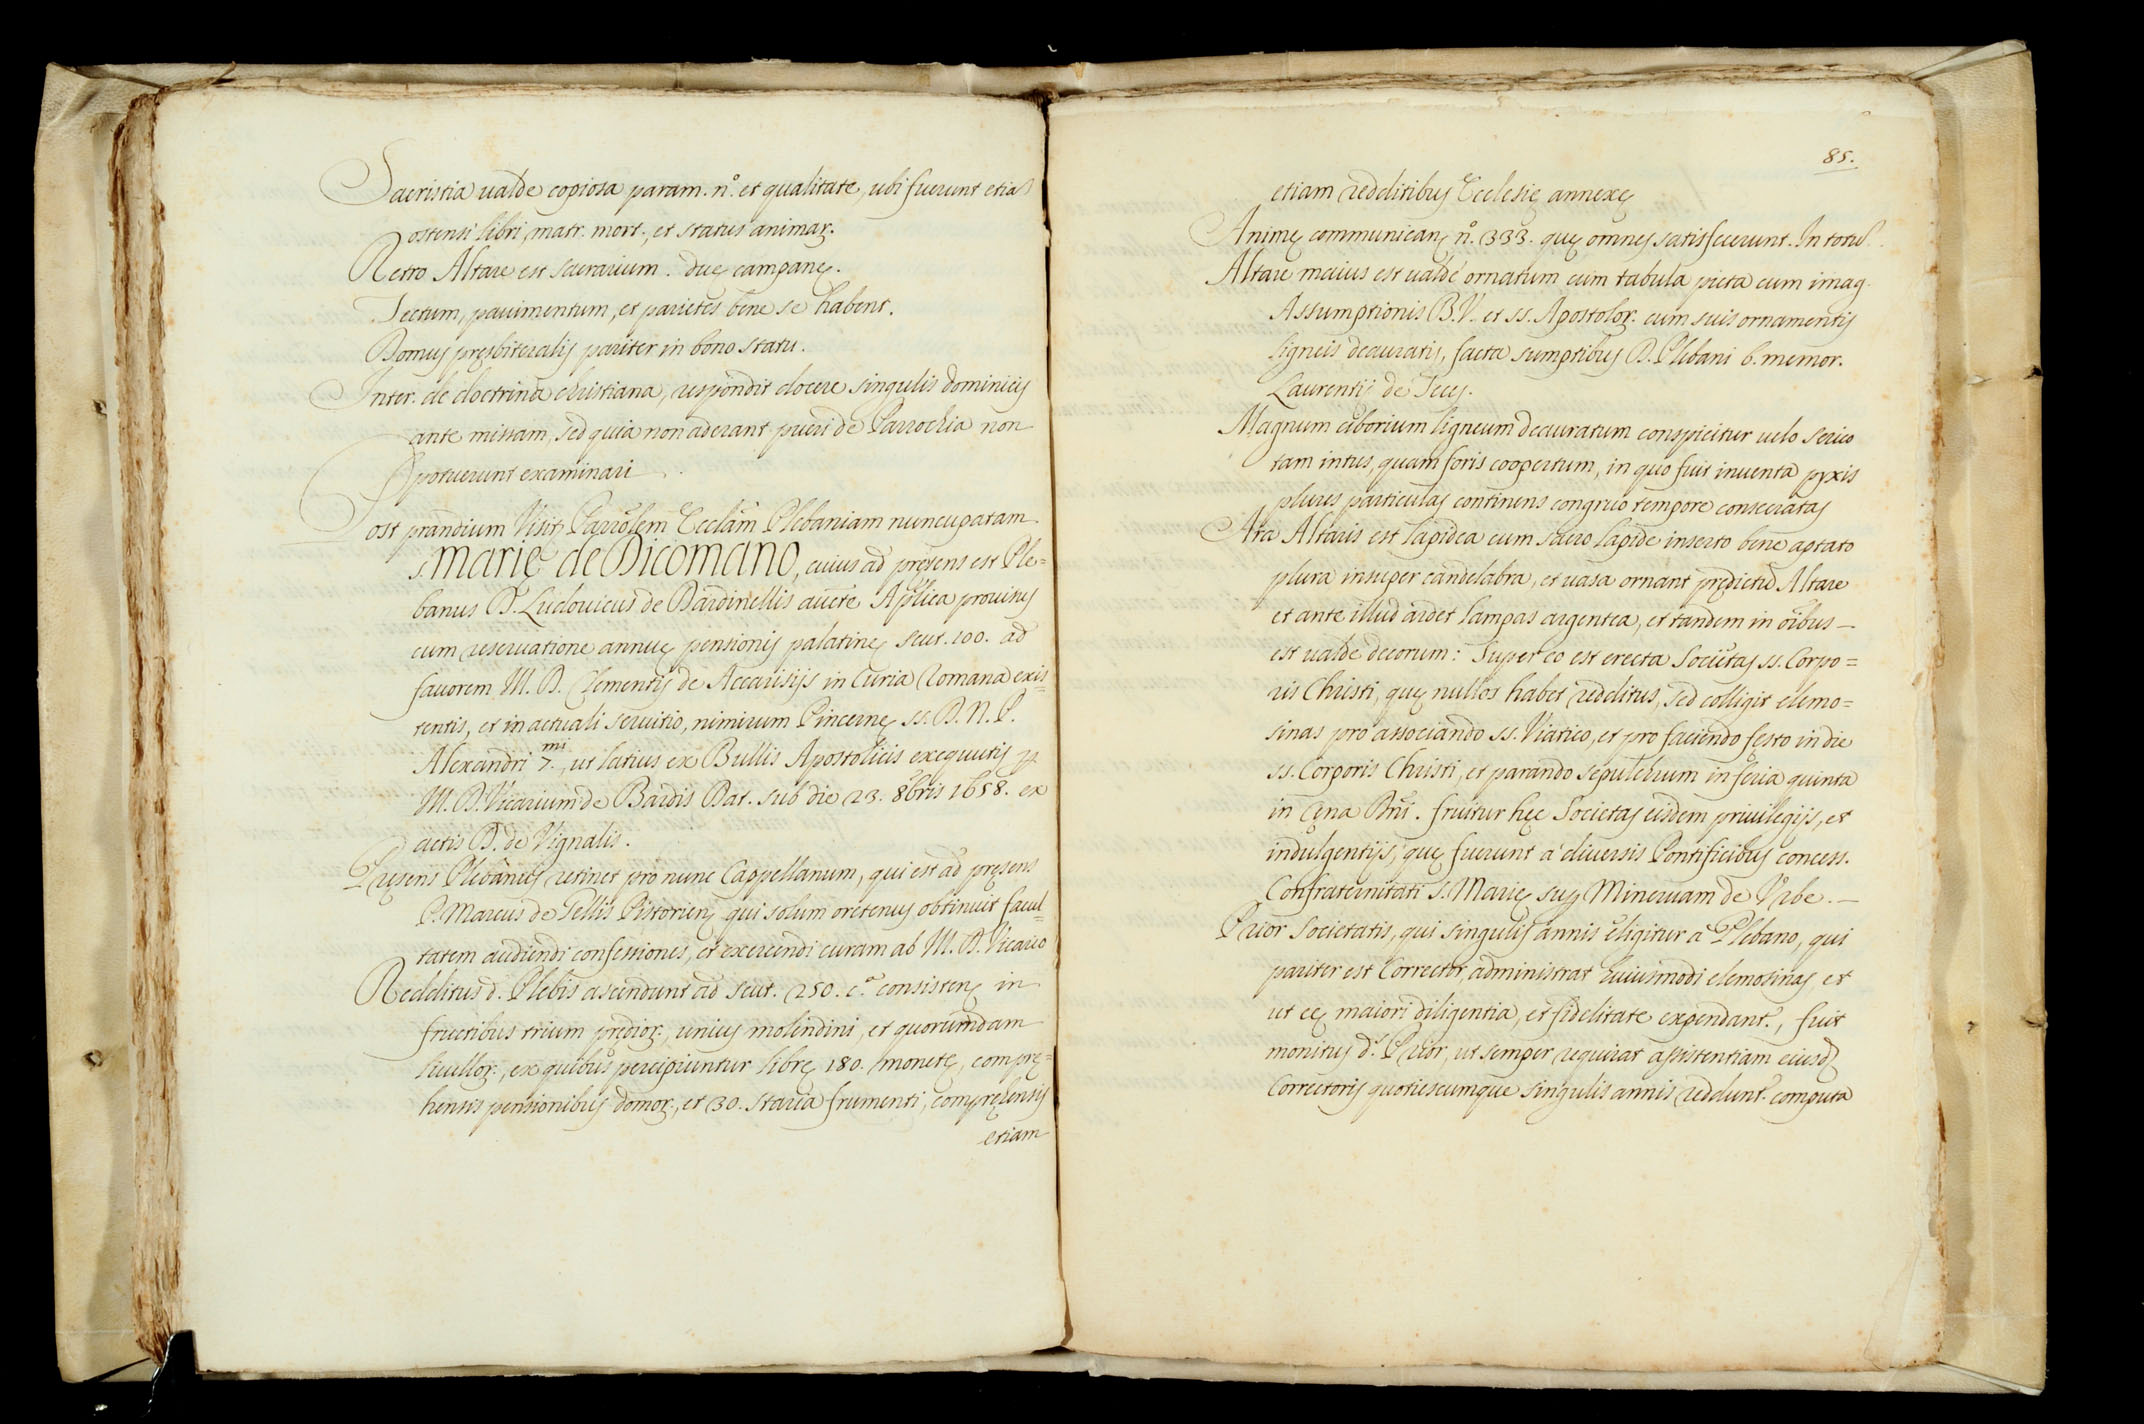 Sacristia ualde copiosa param. n.º et qualitate, ubi fuerunt etiã
ostensi libri, matr. mort., et status animar.
Retro Altare est sacrarium. due campane.
Tectum, pauimentum, et parietes bene se habent.
Domus pręsbiteralis pariter in bono statu.
Inter. de doctrina christiana, respondit docere singulis dominicis
ante missam, sed quia non aderant pueri de Parrochia non
potuerunt examinari
Post prandium Visit. Parrõlem Ecclãm Plebaniam nuncupatam
S. Marię de Dicomano, cuius ad pręsens est Ple=
banus D. Ludouicus de Bardinellis aucte Aplica prouisus
cum reseruatione annuę pensionis palatinę scut. 100. ad
fauorem M. D. Clementis de Accarisijs in Curia Romana exis=
tentis, et in actuali seruitio, nimirum Pincernę SS. D. N. P.
Alexandri 7.mi, ut latius ex Bullis Apostolicis exequutis p
M. D. Vicarium de Bardis Dat. sub die 23. 8bris 1658. ex
actis D. de Vignalis.
Pręsens Plebanus retinet pro nunc Cappellanum, qui est ad pręsens
P. Marcus de Tellis Pistorien. qui solum oretenus obtinuit facul=
tatem audiendi confessiones, et exercendi curam ab M. D. Vicario
Redditus d. Plebis ascendunt ad scut. 250. c.ª consisten. in
fructibus trium prędior., unius molindini, et quorumdam
liuellor., ex quibus percipiuntur librę 180. monetę, comprę=
hensis pensionibus domor., et 30. staria frumenti, compręhensis
etiam
85.
etiam redditibus Ecclesię annexę
Animę communican. n.º 333. quę omnes satisfecerunt. In totũ
Altare maius est ualde ornatum cum tabula picta cum imag.
Assumptionis B. V. et SS. Apostolor. cum suis ornamentis
ligneis deauratis, facta sumptibus D. Plebani b. memor.
Laurentij de
Magnum ciborium ligneum deauratum conspicitur uelo serico
tam intus, quam foris coopertum, in quo fuit inuenta pyxis
plures particulas continens congruo tempore consecratas
Ara Altaris est lapidea cum sacro lapide inserto bene aptato
plura insuper candelabra, et uasa ornant prędictũ Altare
et ante illud ardet lampas argentea, et tandem in õibus
est ualde decorum: Super eo est erecta Societas SS. Corpo=
ris Christi, quę nullos habet redditus, sed colligit elemo=
sinas pro associando SS. Viatico, et pro faciendo festo in die
SS. Corporis Christi, et parando sepulchrum in feria quinta
in Cęna Dni. fruitur hęc Societas eisdem priuilegijs, et
indulgentijs, quę fuerunt à diuersis Pontificibus concess.
Confraternitati S. Marię sup Mineruam de Vrbe.
Prior Societatis, qui singulis annis eligitur à Plebano, qui
pariter est Corrector, administrat huiusmodi elemosinas et
ut eę maiori diligentia, et fidelitate expendant., fuit
monitus d.s Prior, ut semper requirat assistentiam eiusd.
Correctoris quotiescumque singulis annis reddunt. computa